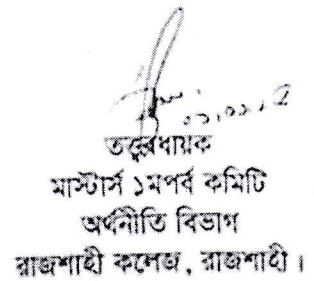 তত্ত্বাবধায়ক
মাস্টার্স ১মপর্ব কমিটি
অর্থনীতি বিভাগ
রাজশাহী কলেজ, রাজশাহী।